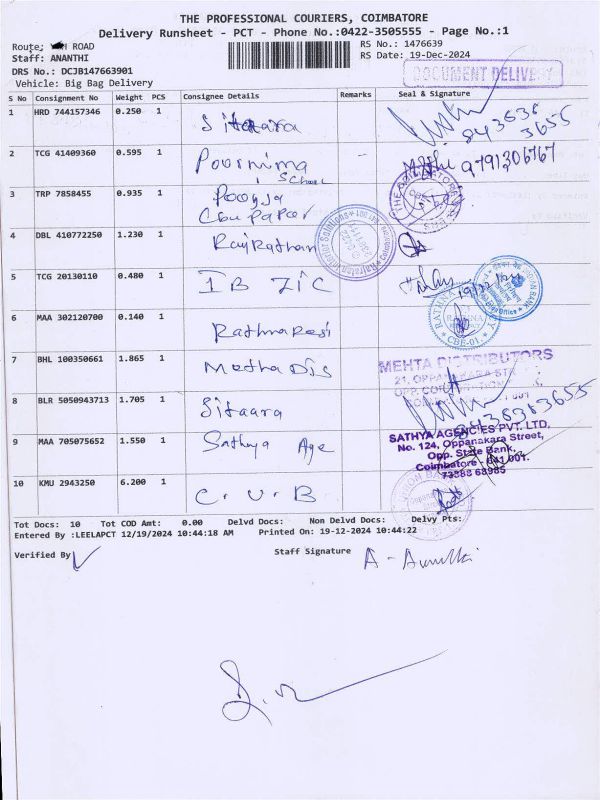 THE PROFESSIONAL COURIERS, COIMBATORE
Delivery Runsheet - PCT - Phone No.:0422-3505555 - Page No.:1
Route: ROAD
RS No.: 1476639
Staff: ANANTHI
RS Date: 19-Dec-2024
DRS No.: DCJB147663901
Vehicle: Big Bag Delivery
DOCUMENT DELIVERY
S No Consignment No Weight PCS Consignee Details Remarks Seal & Signature
1 HRD 744157346 0.250 1 Sitaara 843636 3655
2 TCG 41409360 0.595 1 Poornima School 9791306767
3 TRP 7858455 0.935 1 Pooja
4 DBL 410772250 1.230 1 Raj Rathan
5 TCG 20130110 0.480 1 IB ZIC 19/12/24
6 MAA 302120700 0.140 1
7 BHL 100350661 1.865 1 Metha Dis MEHTA DISTRIBUTORS
8 BLR 5050943713 1.705 1 Sitaara
9 MAA 705075652 1.550 1 Sathya Age SATHYA AGENCIES PVT. LTD,
No. 124, Oppanakara Street,
Opp. State Bank,
Coimbatore - 641 001.
73388 68985
10 KMU 2943250 6.200 1 C.U.B
Tot Docs: 10 Tot COD Amt: 0.00 Delvd Docs: Non Delvd Docs: Delvy Pts:
Entered By :LEELAPCT 12/19/2024 10:44:18 AM Printed On: 19-12-2024 10:44:22
Verified By Staff Signature